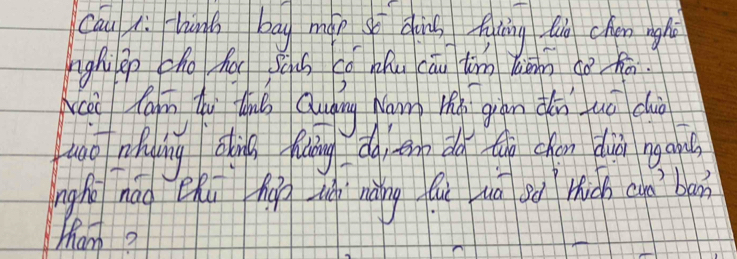 Câu 1: trình bày một số định hướng lựa chọn nghề
nghiệp cho học sinh có nhu cầu tìm kiếm cơ hội.
việc làm tại tỉnh Quảng Nam thời gian đến và dựa
vào những định hướng đó, em đã lựa chọn được ngành,
nghề nào phù hợp với năng lực và sở thích của bản
thân?